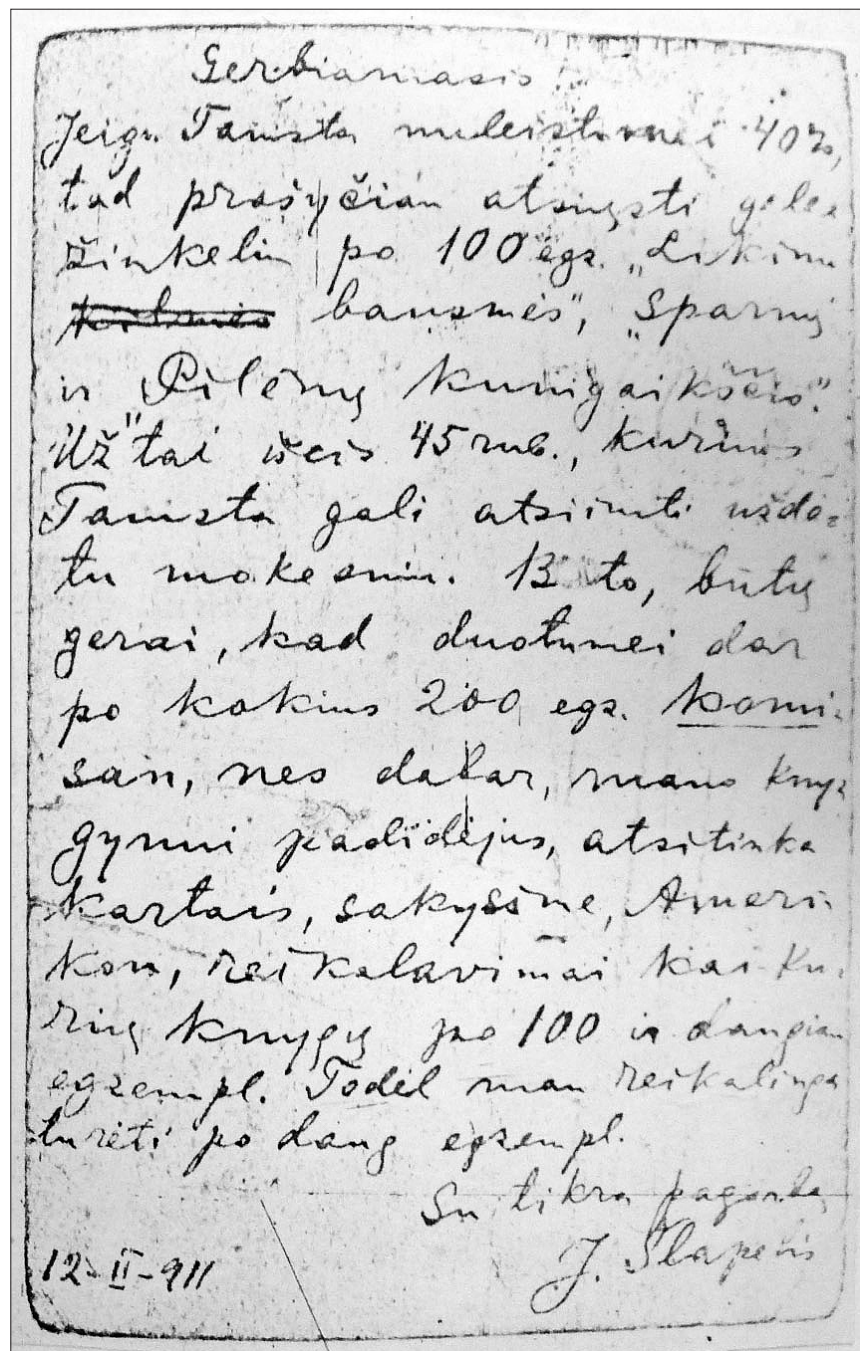 Gerbiamasis!
Jeigu Tamsta nuleistumei 40%,
tad prašyčiau atsiųsti gele=
žinkeliu po 100 egz. „Likimo
bausmės", „Sparnų"
ir „Pilėnų kunigaikščio".
Už tai išeis 45 rub., kuriuos
Tamsta gali atsiimti uždė=
tu mokesniu. B to, butų
gerai, kad duotumei dar
po kokius 200 egz. komi=
san, nes dabar, mano kny=
gynui padidėjus, atsitinka
kartais, sakysime, Ameri=
kon, reikalavimai kai-ku=
rių knygų po 100 ir daugiau
egzempl. Todėl man reikalinga
turėti po daug egzempl.
Su tikra pagarba
J. Šlapelis
12-II-911